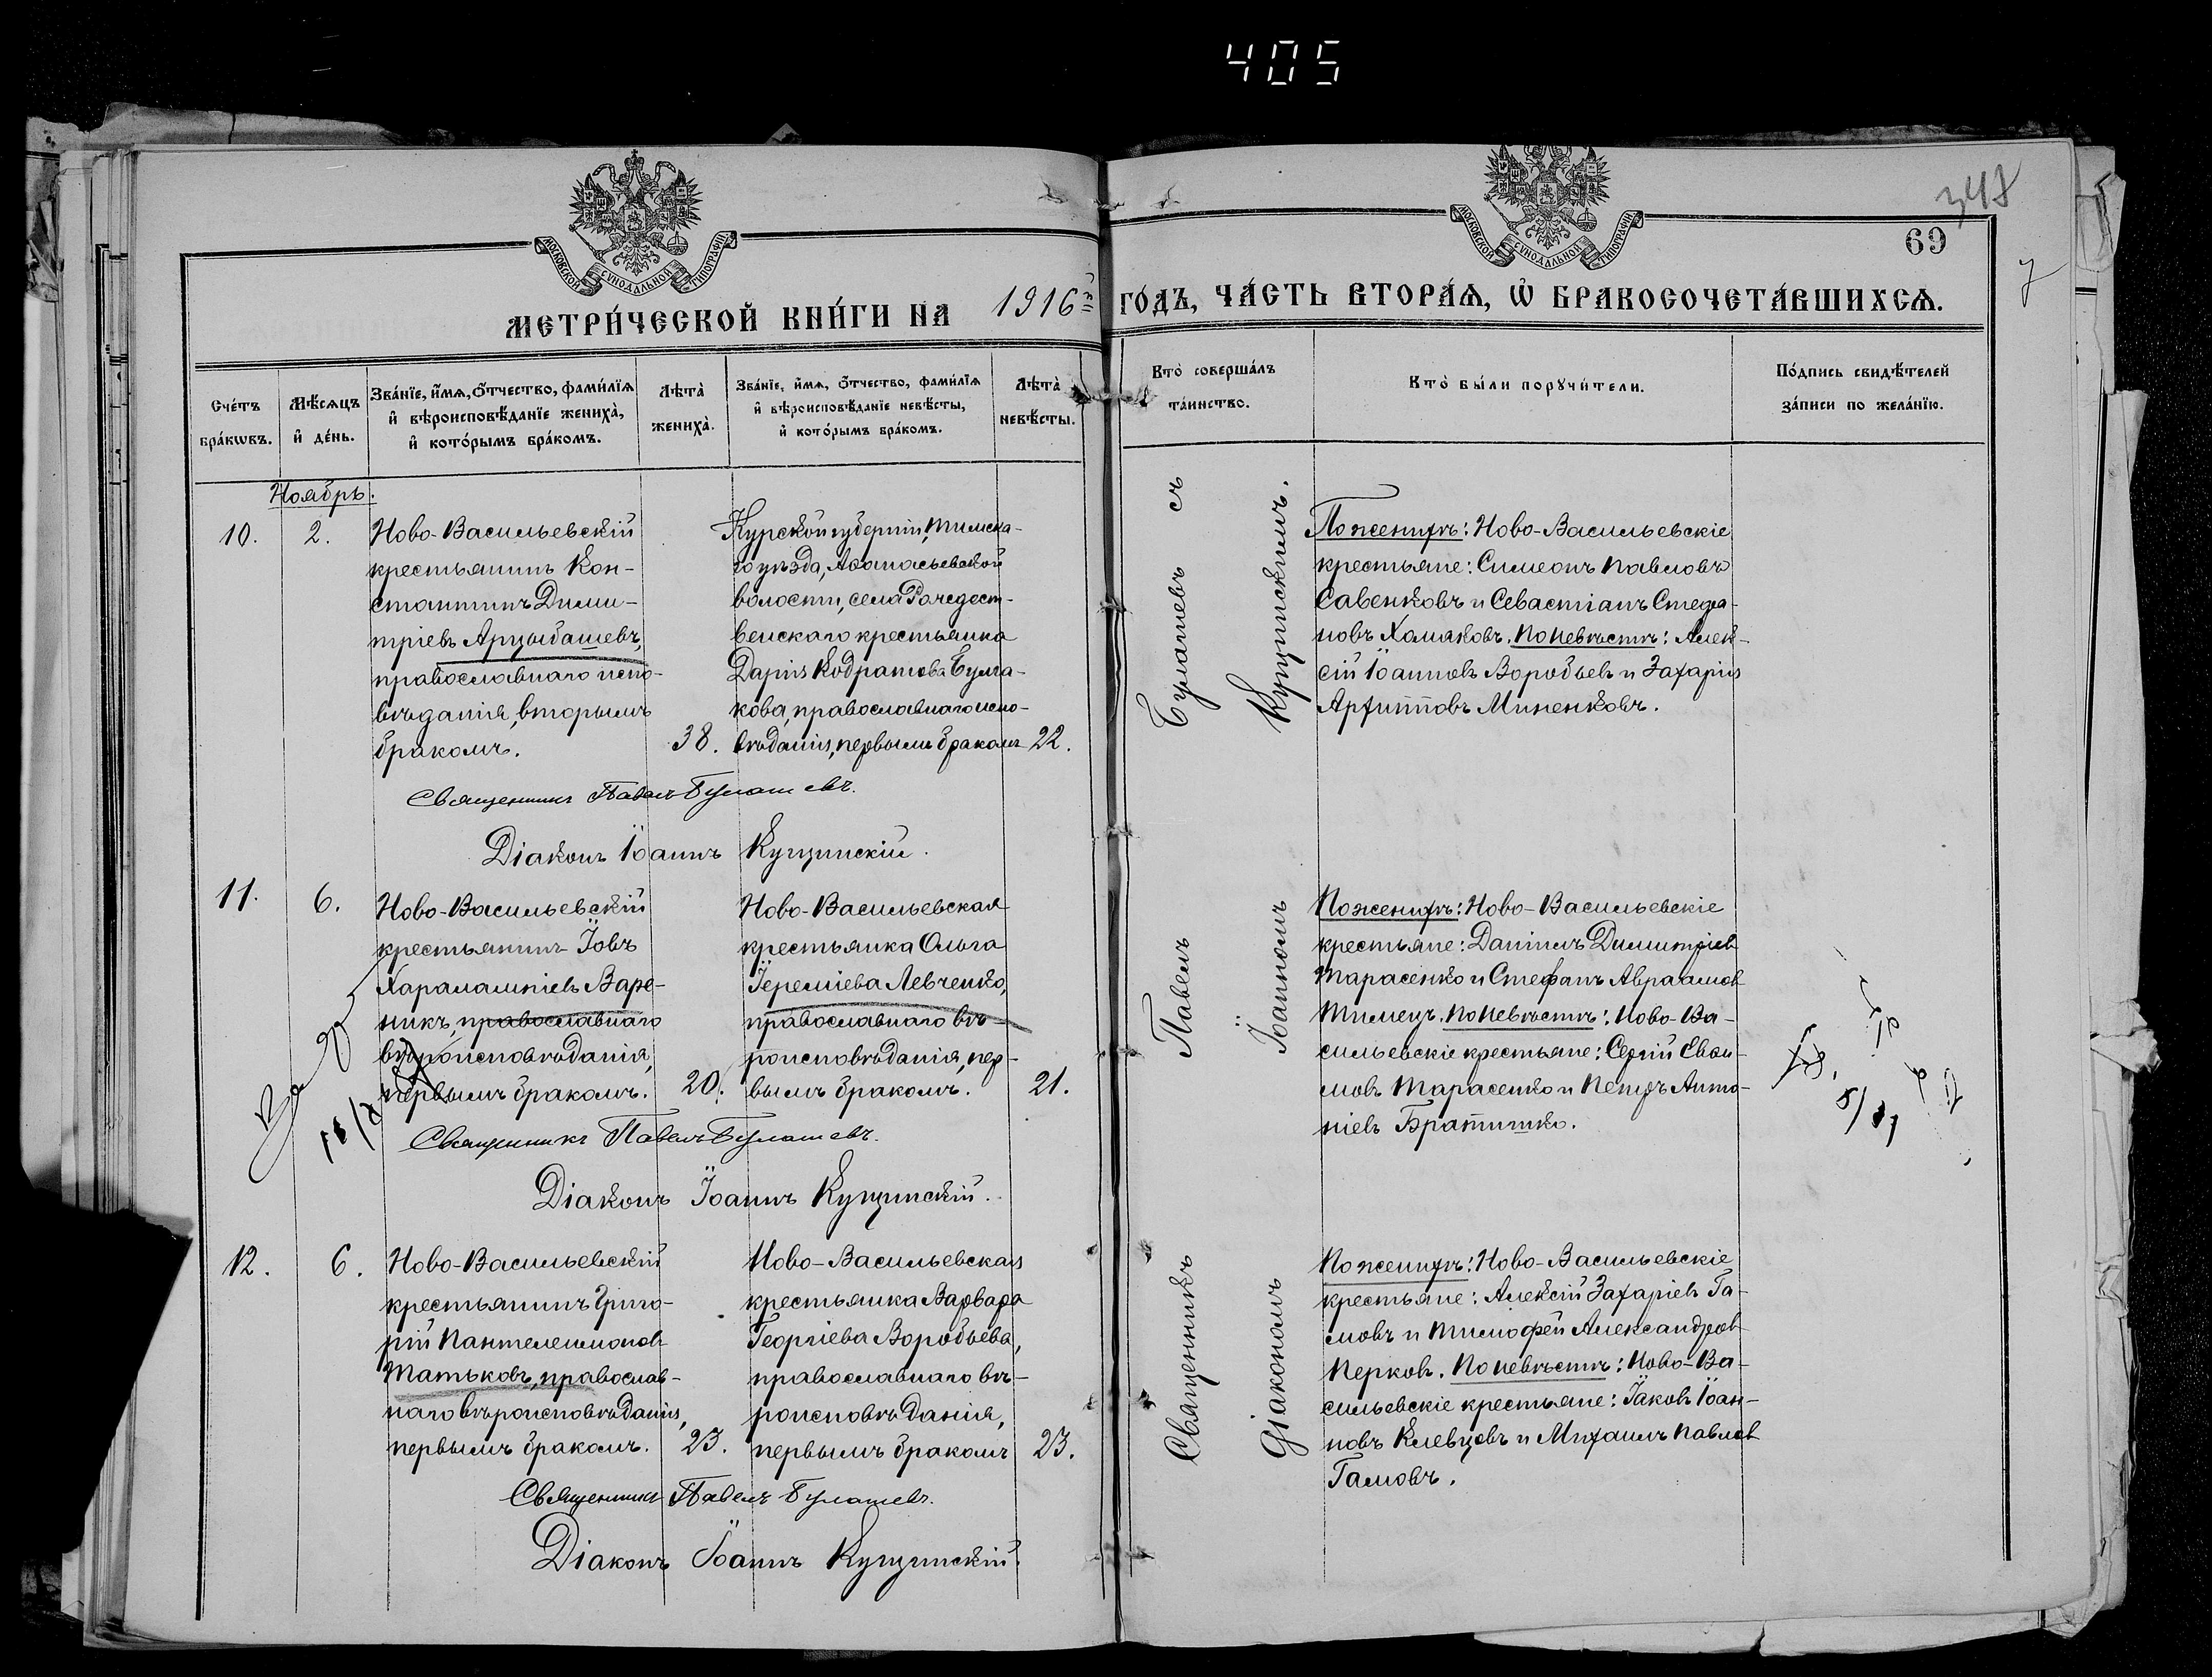 405
347
69
МОСКОВСКОЙ СѴНОДАЛЬНОЙ ТИПОГРАФІИ
МОСКОВСКОЙ СѴНОДАЛЬНОЙ ТИПОГРАФІИ
МЕТРИ́ЧЕСКОЙ КНИ́ГИ НА 1916й ГО́ДЪ, ЧА́СТЬ ВТОРА́Ѧ, Ѽ БРАКОСОЧЕТА́ВШИХСѦ.
Сче́тъ бра́кѡвъ.
Мѣ́сѧцъ и҆ де́нь.
Зва́нїе, и҆́мѧ, ѻ҆́тчество, фами́лїѧ
и҆ вѣроисповѣ́данїе жениха̀,
и҆ кото́рымъ бра́комъ.
Лѣта̀ жениха̀.
Зва́нїе, и҆́мѧ, ѻ҆́тчество, фами́лїѧ
и҆ вѣроисповѣ́данїе невѣ́сты,
и҆ кото́рымъ бра́комъ.
Лѣта̀ невѣ́сты.
Кто̀ соверша́лъ
та́инство.
Кто̀ бы́ли порꙋчи́тели.
По́дпись свидѣ́телей
за́писи по жела́нїю.
Ноябрь.
10. 2.
Ново-Васильевскій
крестьянинъ Кон-
стантинъ Дими-
тріевъ Арцыбашевъ,
православнаго испо-
вѣданія, вторымъ
бракомъ. 38.
Курской губерніи, Тимска-
го уѣзда, Аѳанасьевской
волости, села Рождест-
венскаго крестьянка
Дарія Кодратова Булга-
кова, православнаго испо-
вѣданія, первымъ бракомъ 22.
По женихѣ: Ново-Васильевскіе
крестьяне: Симеонъ Павловъ
Савенковъ и Севастіанъ Стефа-
новъ Хомяковъ. По невѣстѣ: Алек-
сій Іоанновъ Воробьевъ и Захарія
Архипповъ Миненковъ.
Священникъ Павелъ Булашевъ.
Діаконъ Іоаннъ Купчинскій.
11. 6.
Ново-Васильевскій
крестьянинъ Іовъ
Харалампіевъ Варе-
никъ, православнаго
вѣроисповѣданія,
первымъ бракомъ. 20.
Ново-Васильевская
крестьянка Ольга
Іереміева Левченко,
православнаго вѣ-
роисповѣданія, пер-
вымъ бракомъ. 21.
По женихѣ: Ново-Васильевскіе
крестьяне: Даніилъ Димитріевъ
Тарасенко и Стефанъ Авраамовъ
Тимецъ. По невѣстѣ: Ново-Ва-
сильевскіе крестьяне: Сергій Евѳи-
мовъ Тарасенко и Петръ Анто-
ніевъ Братишко.
Священникъ Павелъ Булашевъ.
Діаконъ Іоаннъ Купчинскій.
12. 6.
Ново-Васильевскій
крестьянинъ Григо-
рій Пантелеимоновъ
Татьковъ, православ-
наго вѣроисповѣданія,
первымъ бракомъ. 23.
Ново-Васильевская
крестьянка Варвара
Георгіева Воробьева,
православнаго вѣ-
роисповѣданія,
первымъ бракомъ 23.
По женихѣ: Ново-Васильевскіе
крестьяне: Алексій Захаріевъ Га-
мовъ и Тимофей Александровъ
Перковъ. По невѣстѣ: Ново-Ва-
сильевскіе крестьяне: Іаковъ Іоан-
новъ Клевцовъ и Михаилъ Павловъ
Гамовъ.
Священникъ Павелъ Булашевъ.
Діаконъ Іоаннъ Купчинскій.
Священникъ Павелъ Булашевъ съ
Діакономъ Іоанномъ Купчинскимъ.